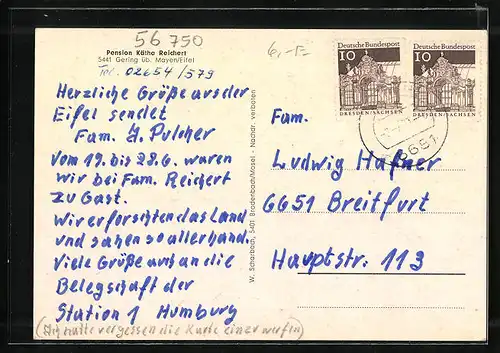 56 750
6,-
Pension Käthe Reichert
5441 Gering üb. Mayen/Eifel
Tel. 02654/579
Herzliche Größe aus der
Eifel sendet
Fam. J. Pulcher
Vom 19. bis 28.6. waren
wir bei Fam. Reichert
zu Gast.
Wir erforschten das Land
und sahen so allerhand.
Viele Größe auch an die
Belegschaft der
Station 1 Humburg
hatte vergessen die Karte einer werfen)
W. Scharbach, 5401 Brodenbach/Mosel - Nachdr. verboten
Deutsche Bundespost
10
DRESDEN/SACHSEN
Deutsche Bundespost
10
DRESDEN/SACHSEN
6651
Fam.
Ludwig Hafner
6651 Breitfurt
Hauptstr. 113